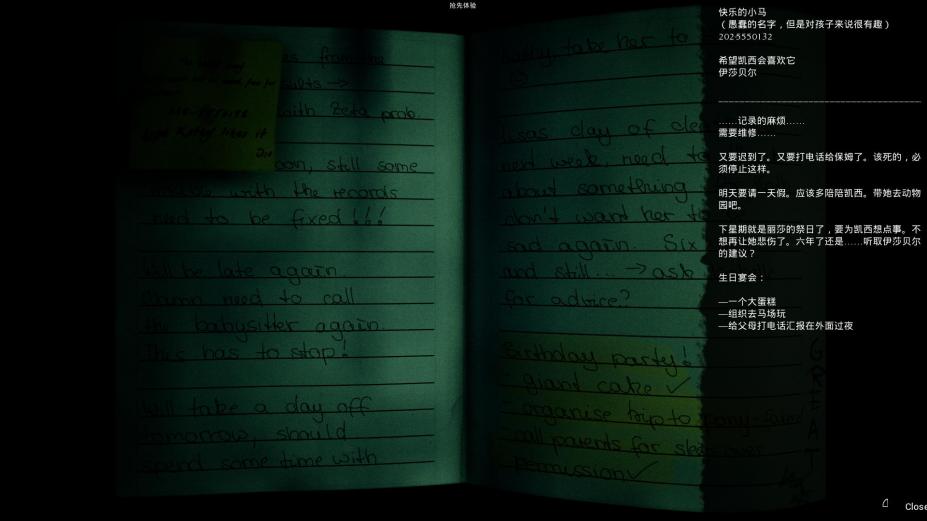 抢先体验
es from the
sults →
with Beta prob.
hope Kathy likes it
soon, still some
with the records
need to be fixed!!!
will be late again.
Damn need to call
the babysitter again.
This has to stop!
Will take a day off
tomorrow, should
spend some time with
take her to
Lisas day of
next week, need to
about something
don't want her to
sad again. Six
and still... → ask
for advice?
Birthday party!
giant cake ✓
organise trip to pony-farm
call parents for sleepover
permission ✓
快乐的小马
（愚蠢的名字，但是对孩子来说很有趣）
2025550132
希望凯西会喜欢它
伊莎贝尔
……记录的麻烦……
需要维修……
又要迟到了。又要打电话给保姆了。该死的，必
须停止这样。
明天要请一天假。应该多陪陪凯西。带她去动物
园吧。
下星期就是丽莎的祭日了，要为凯西想点事。不
想再让她悲伤了。六年了还是……听取伊莎贝尔
的建议？
生日宴会：
—一个大蛋糕
—组织去马场玩
—给父母打电话汇报在外面过夜
Close